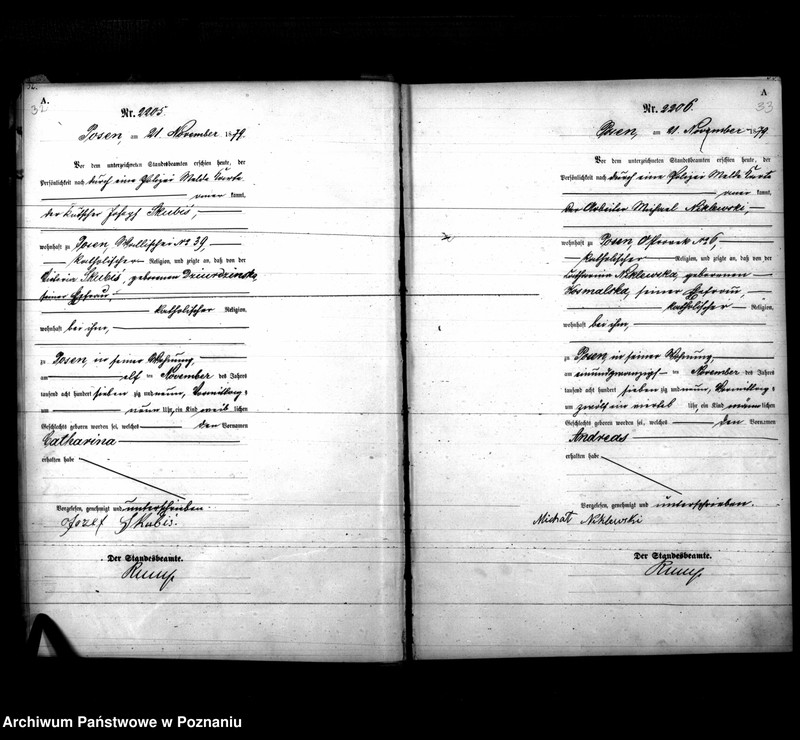 A.
32
Nr. 2205.
Posen, am 21. November 1879.
Vor dem unterzeichneten Standesbeamten erschien heute, der
Persönlichkeit nach durch eine Polizei Melde Karte
kannt,
der Kutscher Josef Skubis,
wohnhaft zu Posen, Wallischei No 39,
katholischer Religion, und zeigte an, daß von der
Victoria Skubis, geborenen
seiner Ehefrau
katholischer Religion,
wohnhaft bei ihm,
zu Posen, in seiner Wohnung,
am elf ten November des Jahres
tausend acht hundert sieben zig und neun, Vormittags
um neun Uhr, ein Kind weib lichen
Geschlechts geboren worden sei, welches den Vornamen
Catharina
erhalten habe
Vorgelesen, genehmigt und unterschrieben.
Jozef Skubiś.
Der Standesbeamte.
A
33
Nr. 2206.
Posen, am 21. November 1879
Vor dem unterzeichneten Standesbeamten erschien heute, der
Persönlichkeit nach durch eine Polizei Melde Karte
kannt,
der Arbeiter Michael Niklewski,
wohnhaft zu Posen, No 6,
katholischer Religion, und zeigte an, daß von der
Catharina Niklewska, geborenen
Kosmalska, seiner Ehefrau,
katholischer Religion,
wohnhaft bei ihm,
zu Posen, in seiner Wohnung,
am einundzwanzigsten November des Jahres
tausend acht hundert sieben zig und neun, Vormittags
um zwölf ein viertel Uhr, ein Kind männ lichen
Geschlechts geboren worden sei, welches den Vornamen
Andreas
erhalten habe
Vorgelesen, genehmigt und unterschrieben.
Michał Niklewski
Der Standesbeamte.
Archiwum Państwowe w Poznaniu